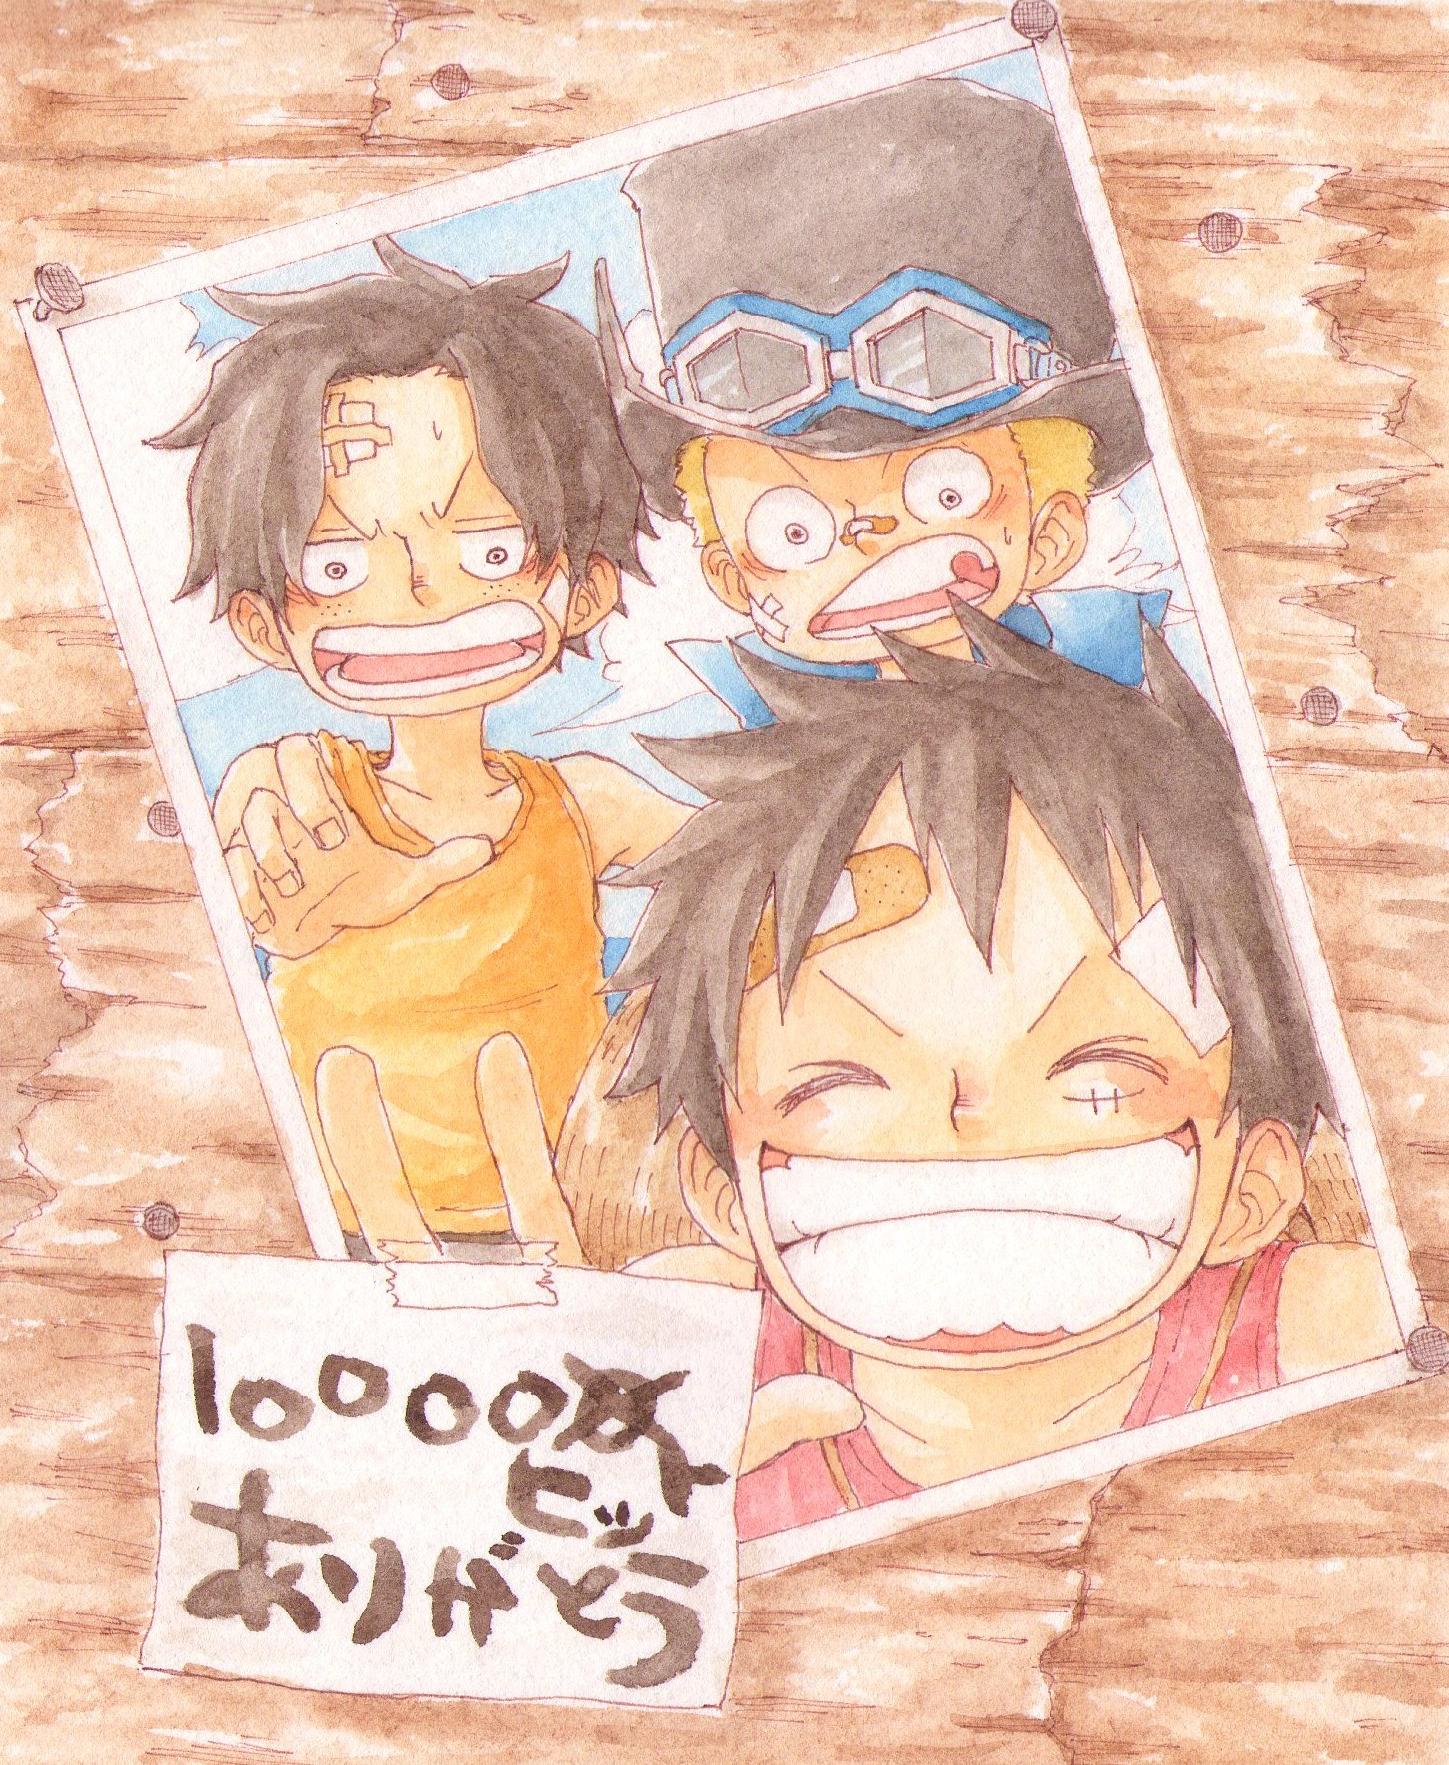 10000
ヒット
ありがとう